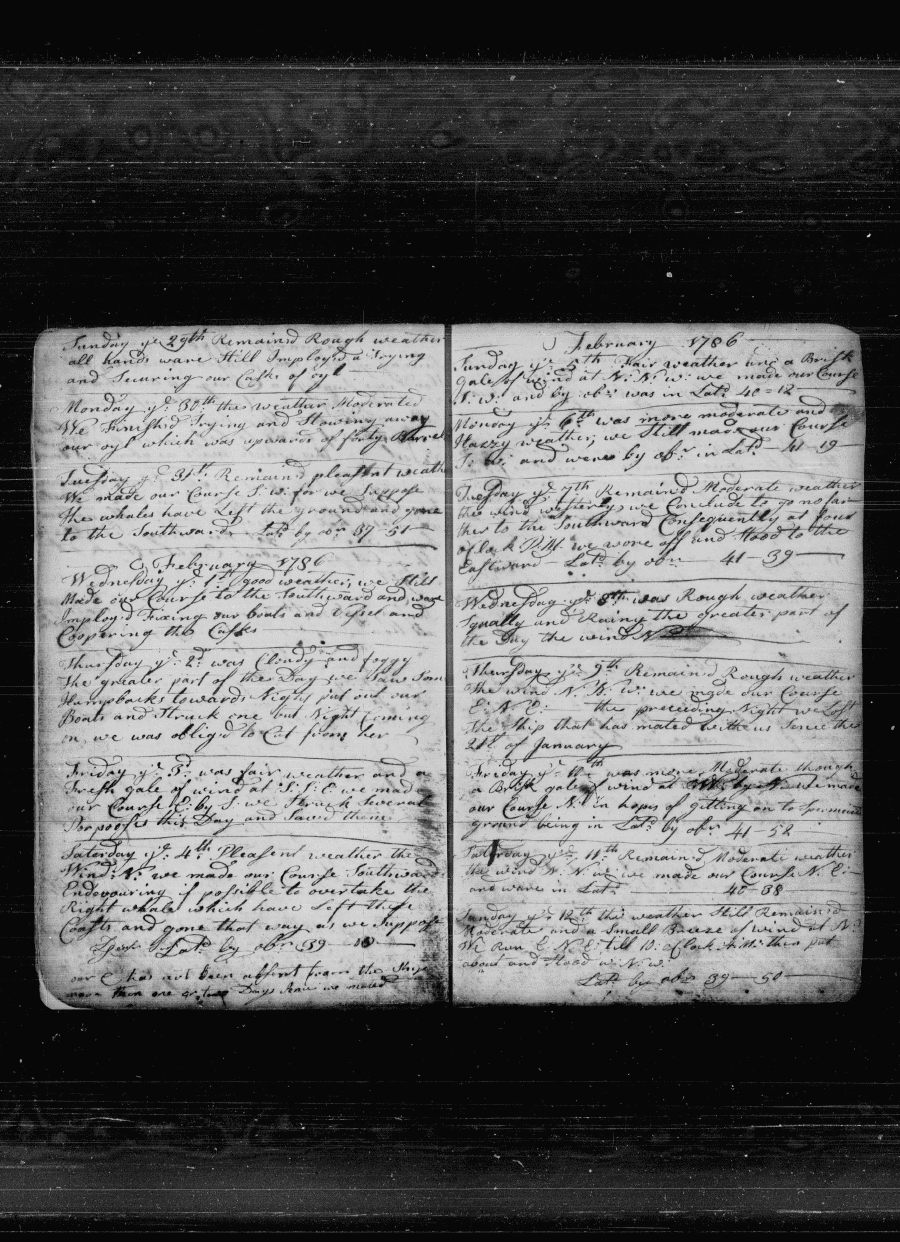 Sunday ye. 29th Remain'd Rough weather
all hands ware Still Imploy'd a Trying
and Securing our Casks of oyl
Monday ye. 30th the weather Moderated
We Finish'd Trying and Stowing away
our oyl which was upwards of forty Barre
Tuesday ye. 31st. Remain'd pleasent weath
We made our Course S. w. for we Suppose
the whales have Left the ground and gone
to the Southward Latd. by obr. 37 - 51
February 1786
Wednesday ye. 1st good weather, we Still
Made our Course to the Southward and ware
Imploy'd Fixing our boats and and
Coopering the Casks
Thursday ye. 2d. was Cloudy and foggy
the greater part of the Day we Saw Som
Humpbacks towards Night put out our
Boats and Struck one but Night Coming
on, we was oblig'd to Cut from her
Friday ye. 3d. was fair weather and a
Fresh gale of wind at S. S. E. we mad
our Course E. by S. we Struck Several
Porpooses this Day and Saved them
Saterday ye. 4th Pleasent weather the
Wind N. we made our Course Southward
Endevouring if possible to overtake the
Right whale which have Left these
Coasts and gone that way as we Suppose
Latd. by obr. 39 - 10
our C has not been absent from the Ship
more than one or two Days Sence we mated
February 1786
Sunday ye. 5th Fair weather and a Brisk
gale of wind at N. N. W. we made our Course
S. w. and by obr. was in Latd. 40 - 12
Monday ye. 6th was more moderate and
Hazzy weather, we Still made our Course
So. w. and were by obr. in Latd. 41 - 19
Tuesday ye. 7th Remain'd Moderate weather
the wind westerly, we Conclude to go no far
ther to the Southward Consequently at four
oClock P. M. we wore off and Stood to the
Eastward Latd. by obr. 41 - 39
Wednesday ye. 8th was Rough weather
Squally and Rainy the greater part of
the Day the wind N
Thursday ye. 9th Remain'd Rough weather
the wind N. N. W. we made our Course
E. N. E. the preceeding Night we Left
the Ship that has mated with us Sence the
28th of January
Friday ye. 10th was more Moderate though
a Brisk gale of wind at by N. we made
our Course N. in hopes of gitting on to
ground being in Latd. by obr. 41 - 52
Saturday ye. 11th Remain'd Moderate weather
the wind W. N. w. we made our Course N. E.
and ware in Latd. 40 - 38
Sunday ye. 12th the weather Still Remain'd
Moderate and a Small Breeze of wind at N.
We Run E. N. E. till 10 oClock then put
about and Stood w. N. w.
Latd. by obr. 39 - 50